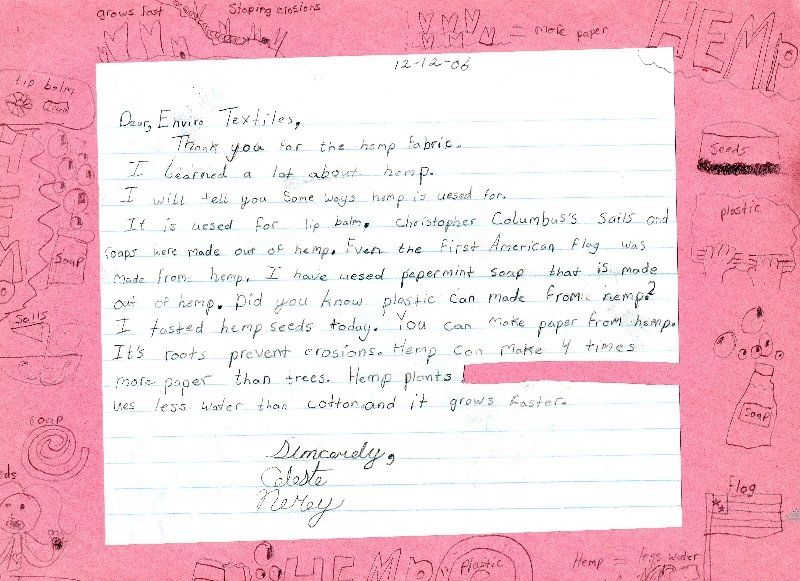 grows fast
Stoping erosions
= more paper
HEMP
lip balm
Seeds
plastic
Soap
Sails
Soap
flag
plastic
Hemp = less water
HEMP
12-12-06
Dear, Enviro Textiles,
Thank you for the hemp fabric.
I learned a lot about hemp.
I will tell you some ways hemp is uesed for.
It is uesed for lip balm, Christopher Columbus's Sails and
roaps were made out of hemp. Even the first American flag was
made from hemp. I have uesed pepermint soap that is made
out of hemp. Did you know plastic can made from hemp?
I tasted hemp seeds today. You can make paper from hemp.
It's roots prevent erosions. Hemp can make 4 times
more paper than trees. Hemp plants
ues less water than cotton and it grows faster.
Sincerely,
Celeste